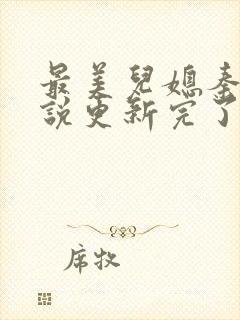 最美兒媳秦
說更新完了
席牧